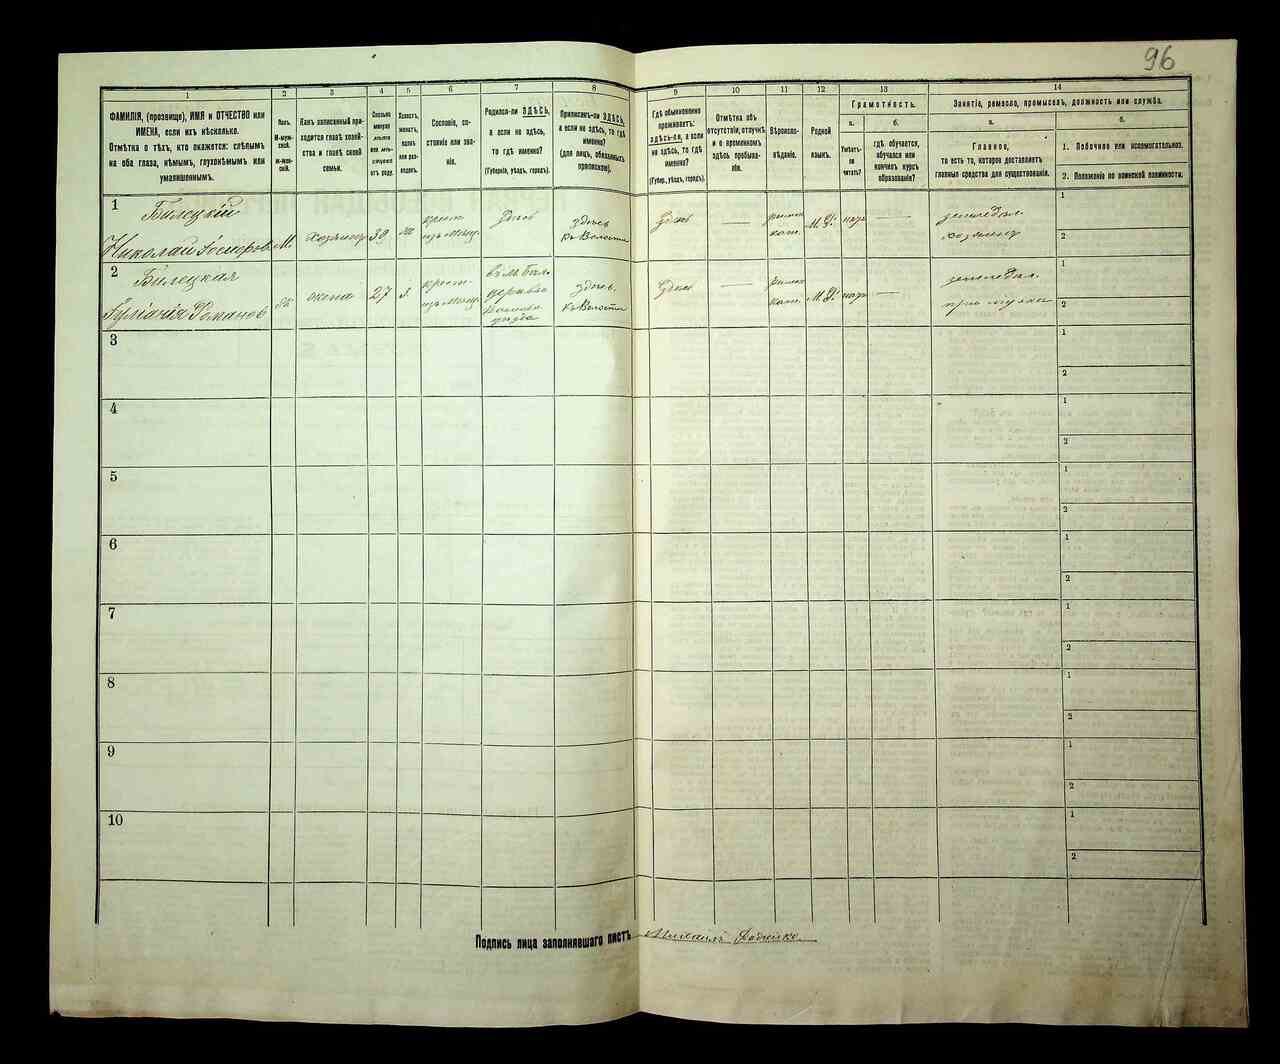 96
1
2
3
4
5
6
7
8
9
10
11
12
13
14
ФАМИЛІЯ, (прозвище), ИМЯ и ОТЧЕСТВО или
ИМЕНА, если ихъ нѣсколько.
Отмѣтка о тѣхъ, кто окажется: слѣпымъ
на оба глаза, нѣмымъ, глухонѣмымъ или
умалишеннымъ.
Полъ.
М-муж-
ской.
ж-жен-
скій.
Какъ записанный при-
ходится главѣ хозяй-
ства и главѣ своей
семьи.
Сколько
минуло
лѣтъ
или мѣ-
сяцевъ
отъ роду.
Холостъ,
женатъ,
вдовъ
или раз-
веденъ.
Сословіе, со-
стояніе или зва-
ніе.
Родился-ли ЗДѢСЬ,
а если не здѣсь,
то гдѣ именно?
(Губернія, уѣздъ, городъ).
Приписанъ-ли ЗДѢСЬ,
а если не здѣсь, то гдѣ
именно?
(для лицъ, обязанныхъ
припискою).
Гдѣ обыкновенно
проживаетъ:
здѣсь-ли, а если
не здѣсь, то гдѣ
именно?
(Губер., уѣздъ, городъ).
Отмѣтка объ
отсутствіи, отлучкѣ
и о временномъ
здѣсь пребыва-
ніи.
Вѣроиспо-
вѣданіе.
Родной
языкъ.
Грамотность.
а.
б.
Умѣетъ-
ли
читать?
гдѣ обучается,
обучался или
кончилъ курсъ
образованія?
Занятіе, ремесло, промыселъ, должность или служба.
а.
б.
Главное,
то есть то, которое доставляетъ
главныя средства для существованія.
1. Побочное или вспомогательное.
2. Положеніе по воинской повинности.
1
Билецкій
Николай
М
хозяинъ
39
крест.
Здѣсь
здѣсь
къ Волости
Здѣсь
—
римск
кат.
—
земледѣл.
хозяинъ
1
2
2
Билецкая
Романов
жена
27
з.
крест.
здѣсь.
къ Волости
Здѣсь
—
римск
кат.
—
земледѣл.
при мужѣ
1
2
3
1
2
4
1
2
5
1
2
6
1
2
7
1
2
8
1
2
9
1
2
10
1
2
Подпись лица заполнявшаго листъ
Михаилъ